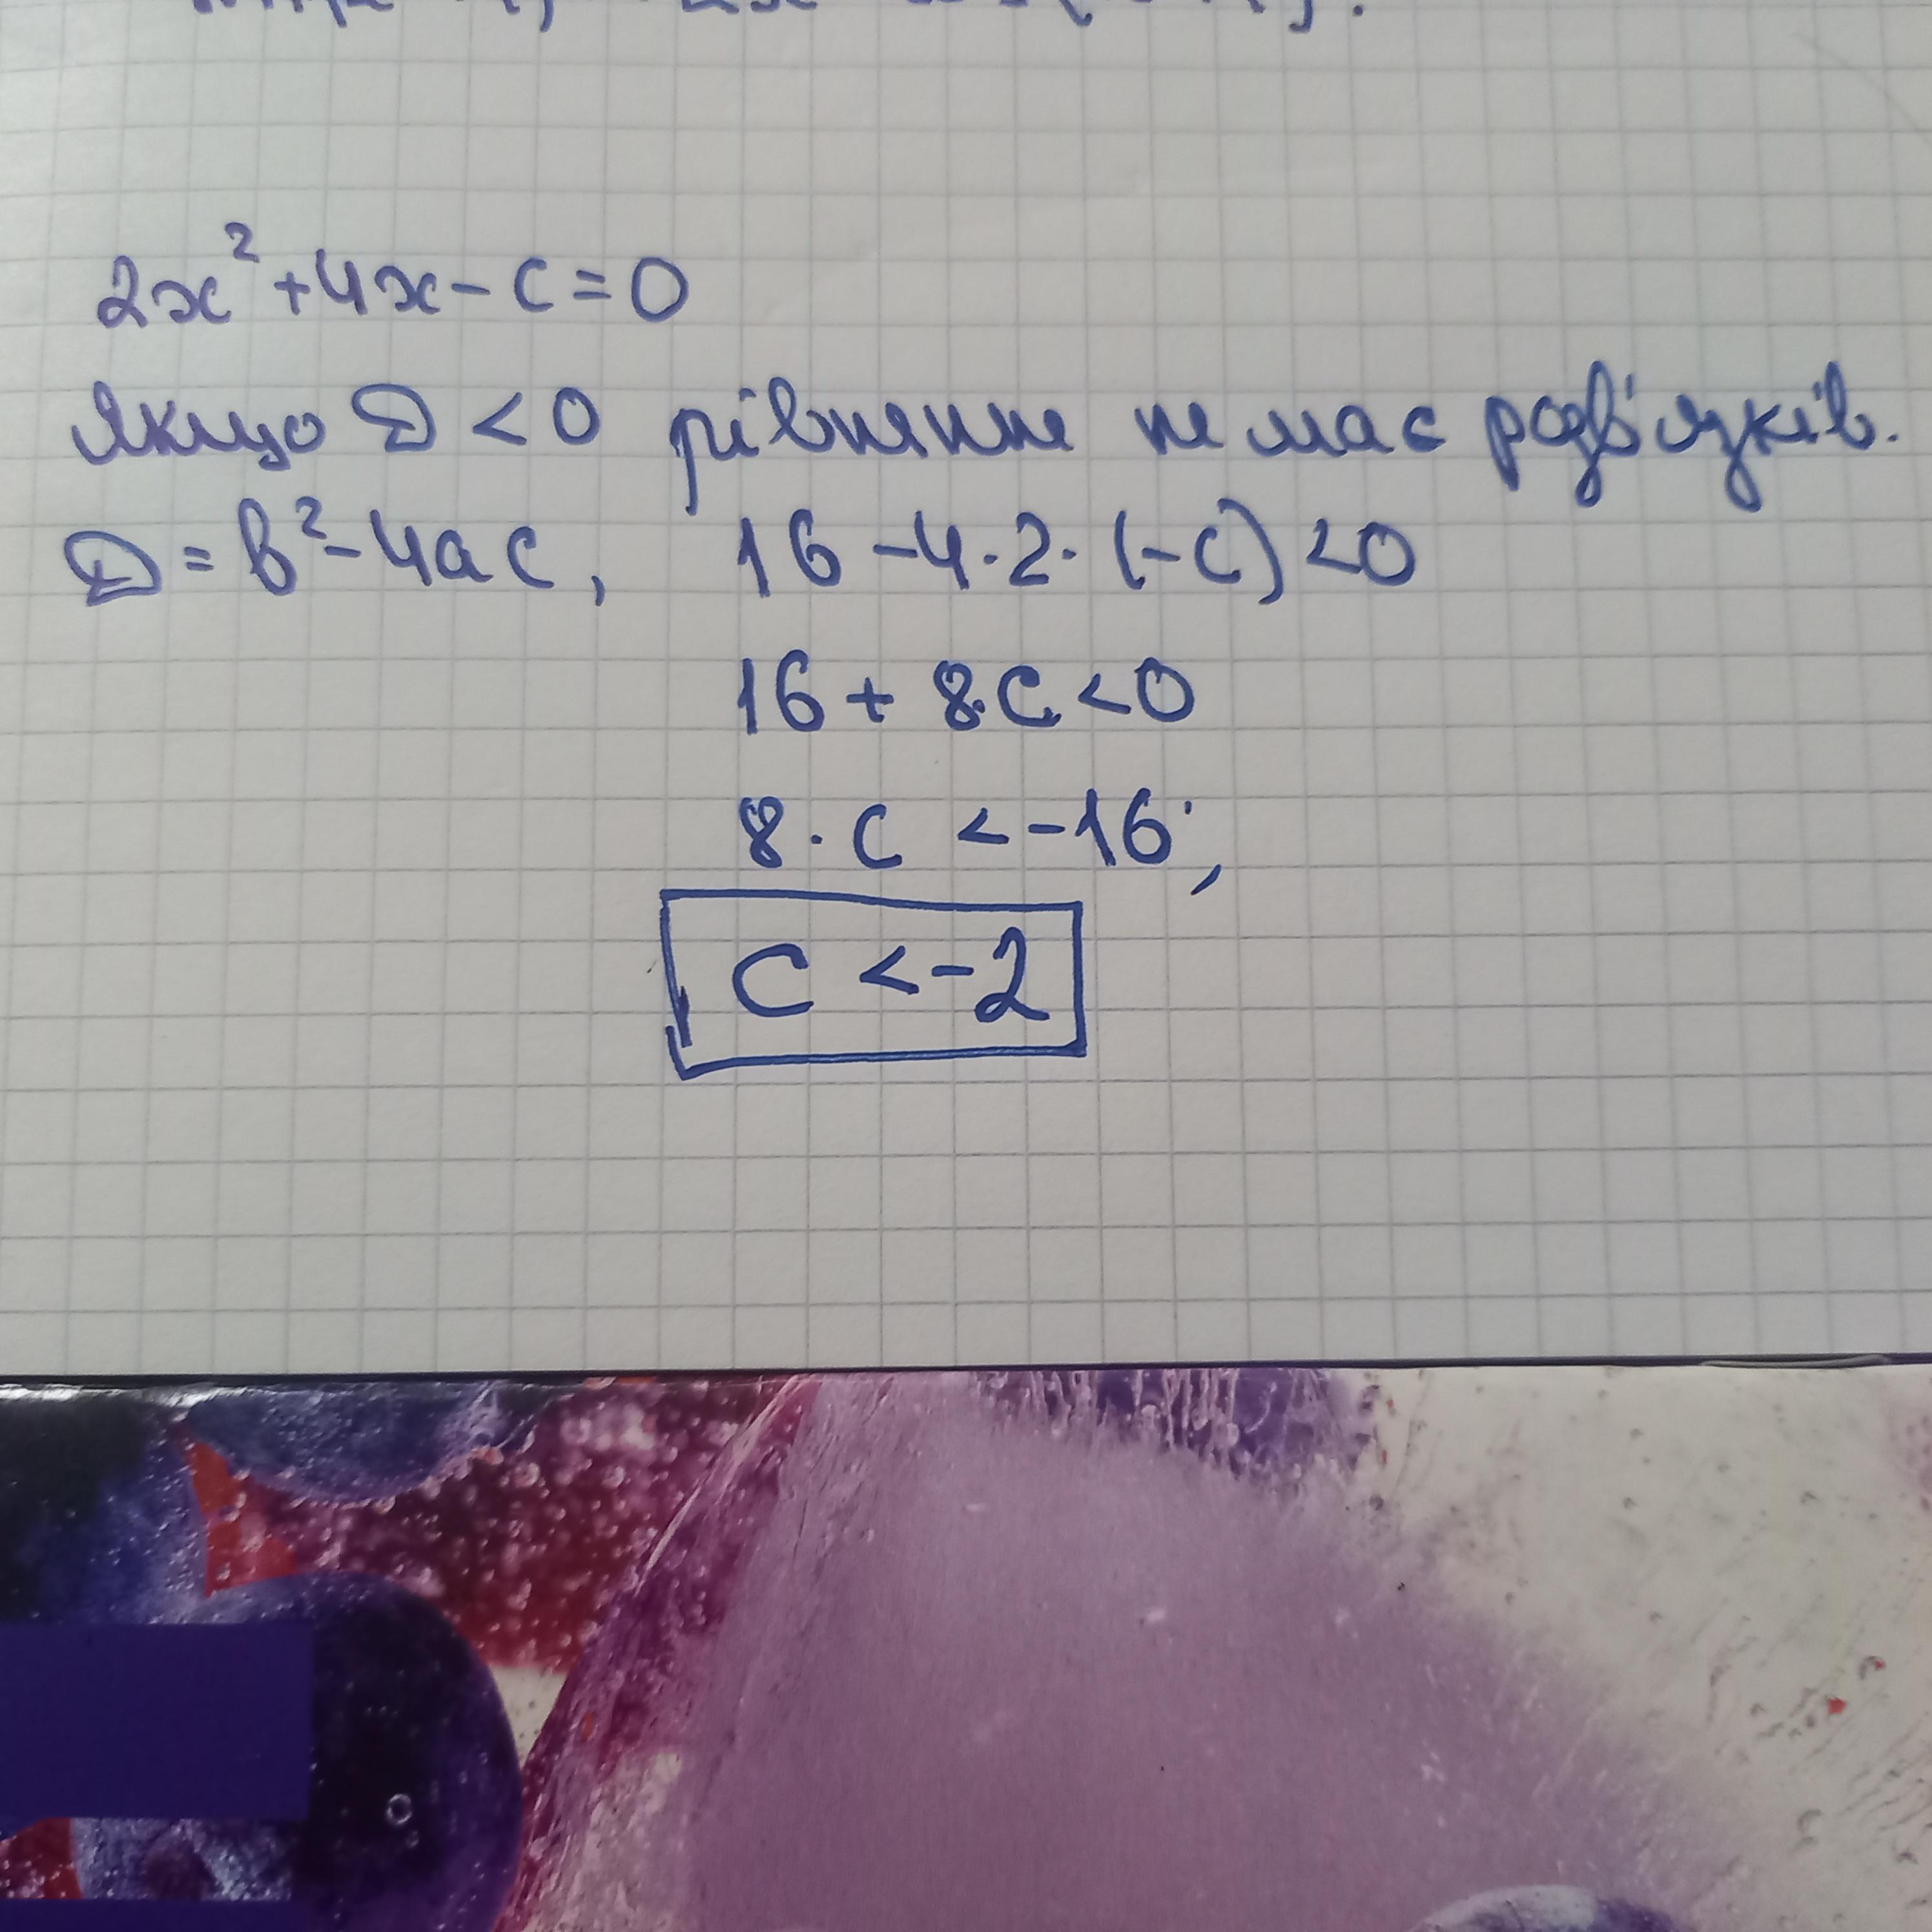 2x² + 4x - c = 0
Якщо D < 0 рівняння не має розв'язків.
D = b² - 4ac, 16 - 4 · 2 · (-c) < 0
16 + 8·c < 0
8 · c < -16;
c < -2